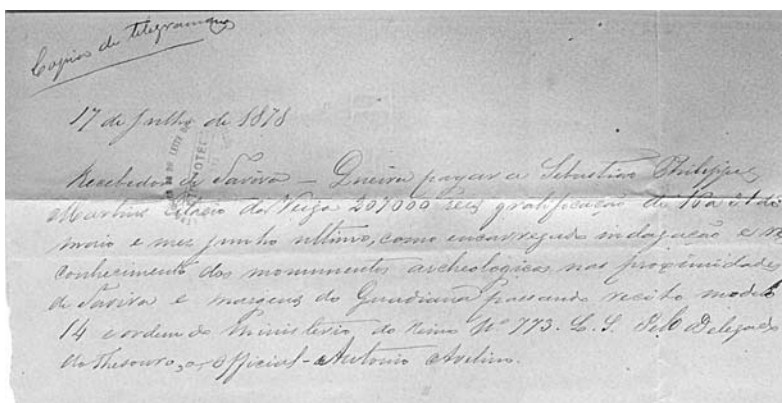 Copia de telegramma
17 de Julho de 1878
Recebedor de Tavira — Queira pagar a Sebastião Philippe
Martins Estacio da Veiga 207000 reis gratificação de 16 a 31 de
maio e mez junho ultimo, como encarregado indagação e re
conhecimento dos monumentos archeologicos nas proximidade
de Tavira e margens do Guadiana passando recibo modelo
14 e ordem do Ministerio do Reino Nº 773. L. S. Pelo Delegado
do Thesouro, o Official - Antonio Avelino.